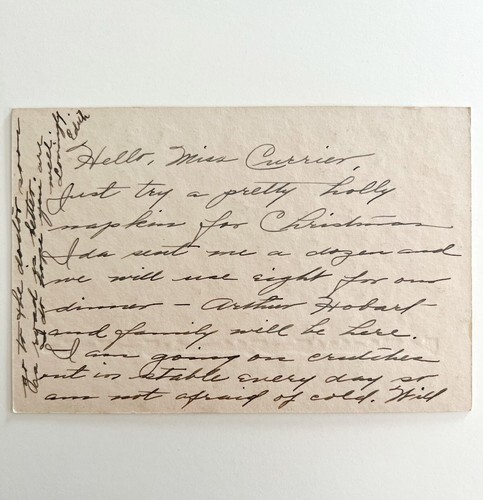 Hello, Miss Currier,
Just try a pretty holly
napkin for Christmas
Ida sent me a dozen and
we will use eight for our
dinner - Arthur Hobart
and family will be here.
I am going on crutches
out in stable every day so
am not afraid of cold. Will
go to the doctor soon
as road is better.
I do hope you are
well.
Edith